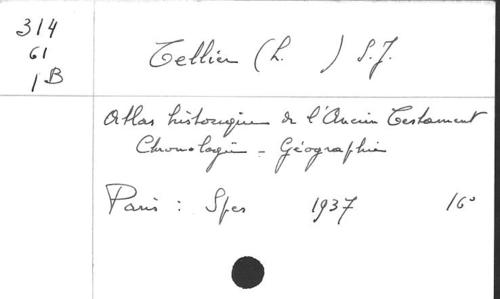 314
61
1B
Tellier (L. ) S.J.
Atlas historique de l'Ancien Testament
Chronologie - Géographie
Paris : Spes 1937 16°